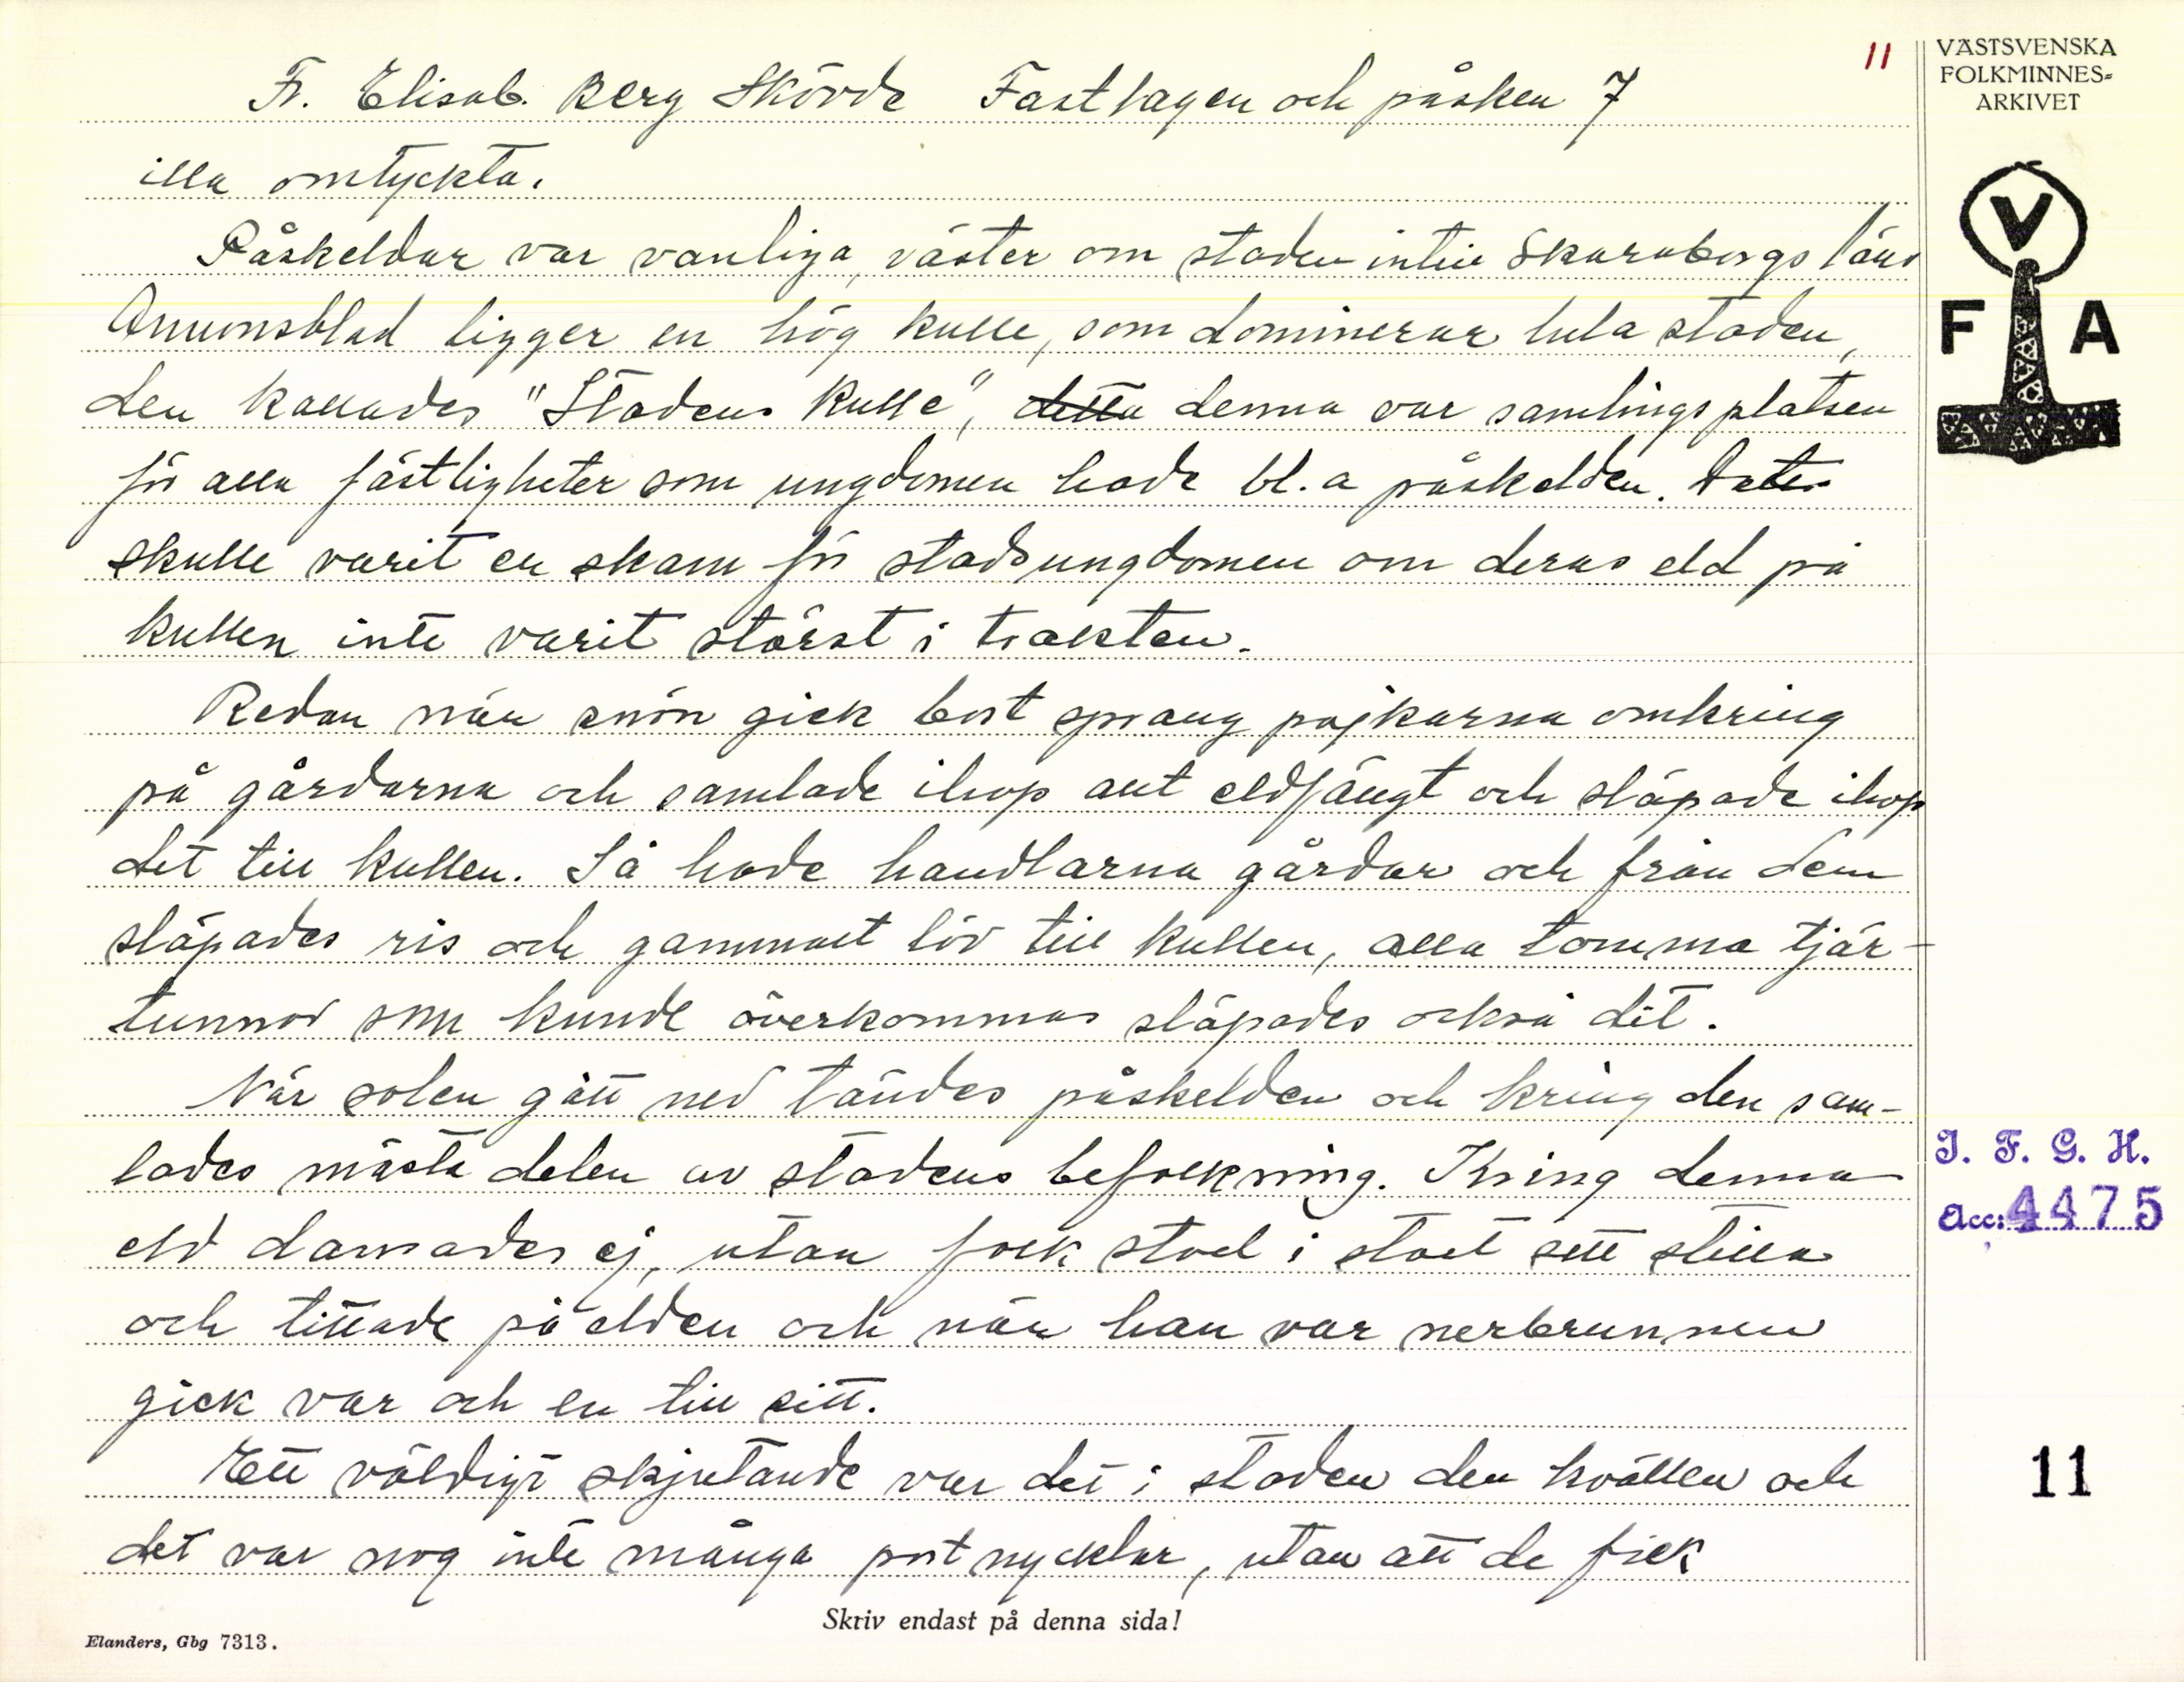 11
VÄSTSVENSKA
FOLKMINNES-
ARKIVET
Fr. Elisab. Berg Skövde Fastlagen och påsken 7
illa omtyckta.
Påskeldar var vanliga, väster om staden intill Skaraborgs läns
Annonsblad ligger en hög kulle, som dominerar hela staden,
den kallades "Stadens Kulle", detta denna var samlingsplatsen
för alla fästligheter som ungdomen hade bl. a påskelden. Det
skulle varit en skam för stadsungdomen om deras eld på
kullen inte varit störst i trakten.
Redan när snön gick bort sprang pojkarna omkring
på gårdarna och samlade ihop allt eldfängt och släpade ihop
det till kullen. Så hade handlarna gårdar och från dem
släpades ris och gammalt löv till kullen, alla tomma tjär-
tunnor som kunde överkommas släpades också dit.
När solen gått ned tändes påskelden och kring den sam-
lades mästa delen av stadens befolkning. Kring denna
eld dansades ej, utan folk stod i stort sett stilla
och tittade på elden och när han var nerbrunnen
gick var och en till sitt.
Ett väldigt skjutande var det i staden den kvällen och
det var nog inte många portnycklar, utan att de fick
V
F A
I. F. G. H.
Acc: 4475
11
Skriv endast på denna sida!
Elanders, Gbg 7313.